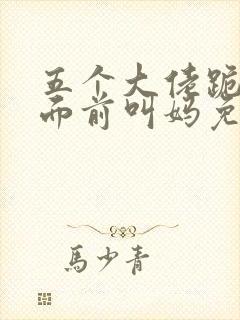 五个大佬跪
面前叫妈免
馬少青